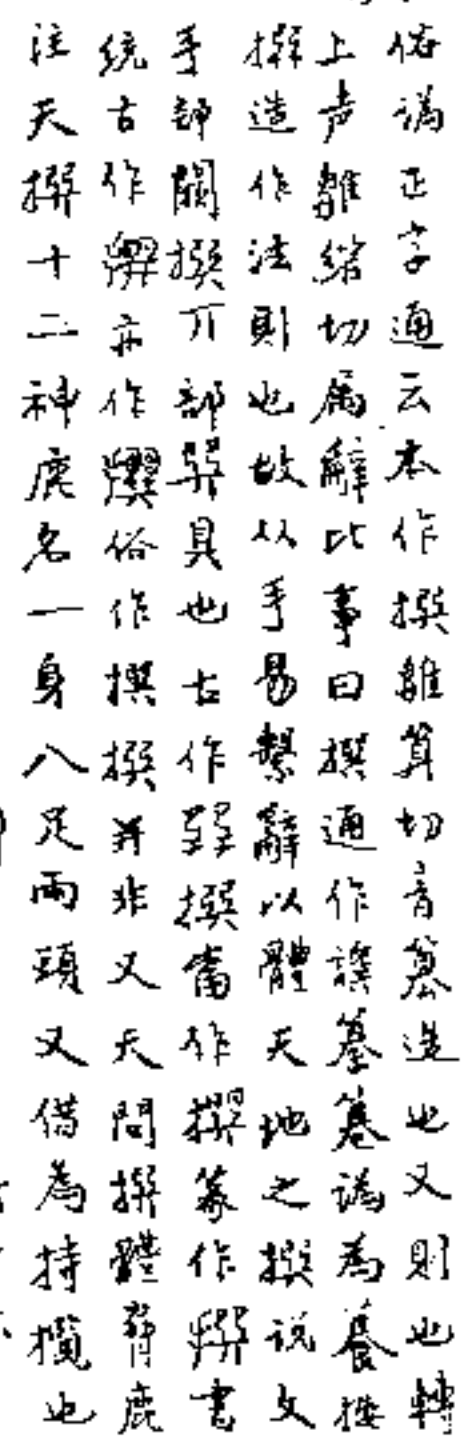 俗譌正字通云本作撰雛算切音篹造也又則也轉
上声雛綰切属辭比事曰撰通作譔篹篹譌為養按
撰造作法則也故从手易繫辭以體天地之撰说文
手部闕撰丌部巽具也古作撰當作撰篆作書
统古作亦作俗作撰撰并非又天問撰體脅鹿
注天撰十二神鹿名一身八足兩頭又借為持攬也